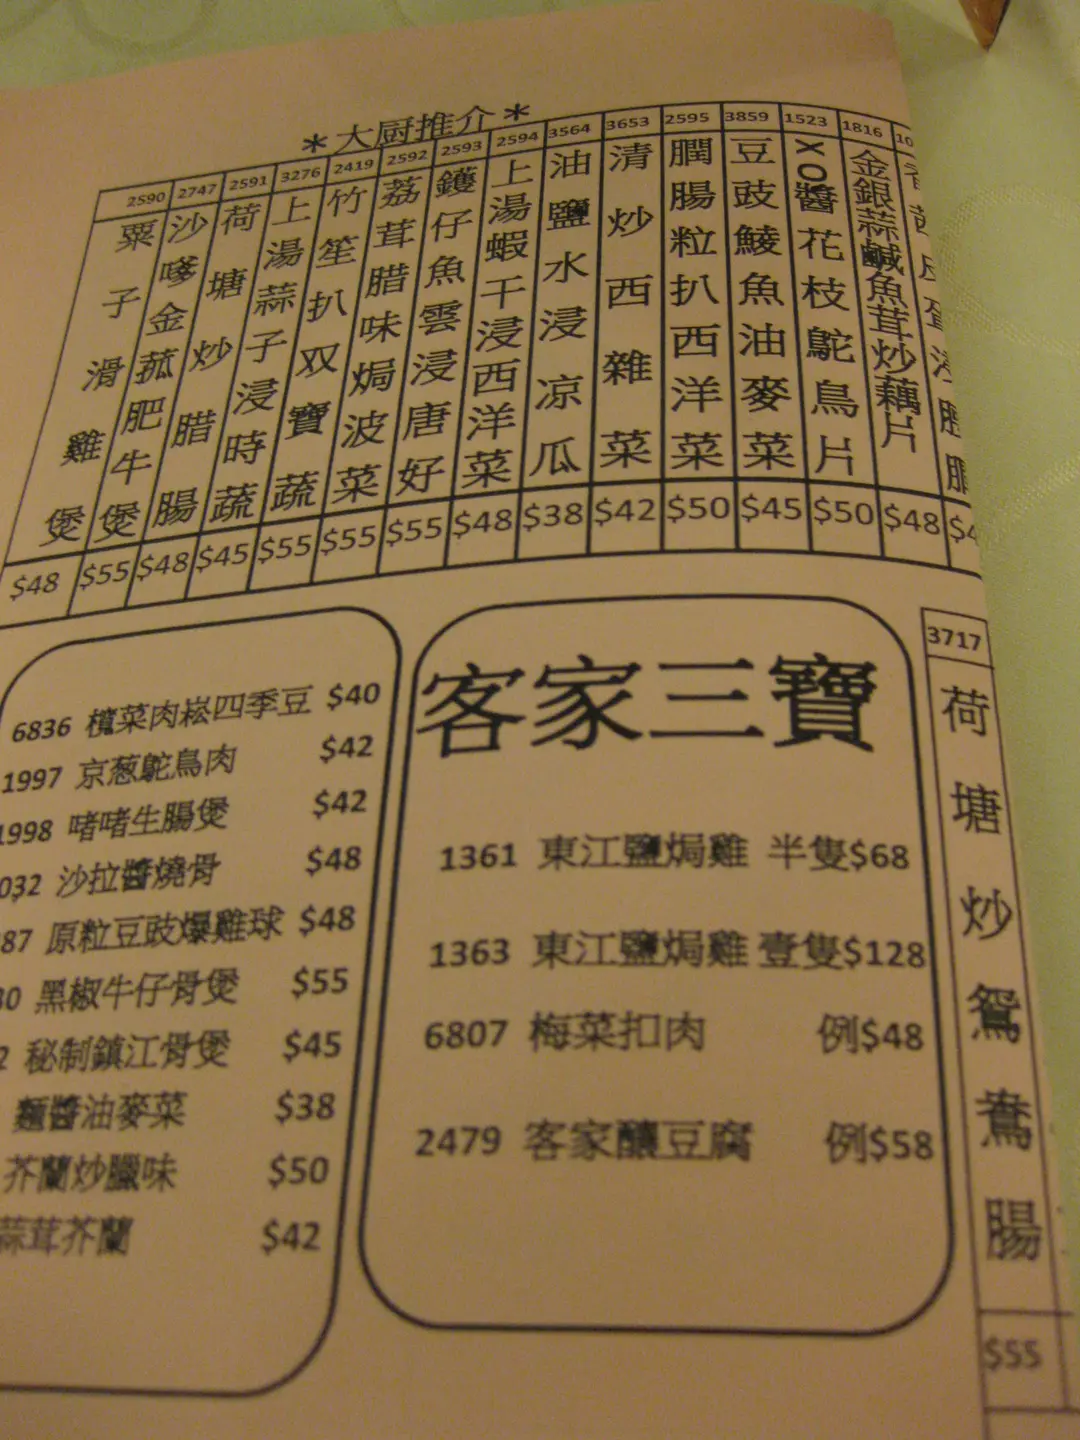 ＊大厨推介＊
2590 粟子滑雞煲 $48
2747 沙嗲金菰肥牛煲 $55
2591 荷塘炒腊腸 $48
3276 上湯蒜子浸時蔬 $45
2419 竹笙扒双寶蔬 $55
2592 荔茸腊味焗波菜 $55
2593 鑊仔魚雲浸唐好 $55
2594 上湯蝦干浸西洋菜 $48
3564 油鹽水浸凉瓜 $38
3653 清炒西雜菜 $42
2595 膶腸粒扒西洋菜 $50
3859 豆豉鯪魚油麥菜 $45
1523 XO醬花枝鴕鳥片 $50
1816 金銀蒜鹹魚茸炒藕片 $48
6836 欖菜肉崧四季豆 $40
1997 京葱鴕鳥肉 $42
1998 啫啫生腸煲 $42
032 沙拉醬燒骨 $48
87 原粒豆豉爆雞球 $48
30 黑椒牛仔骨煲 $55
2 秘制鎮江骨煲 $45
麵醬油麥菜 $38
芥蘭炒臘味 $50
蒜茸芥蘭 $42
客家三寶
1361 東江鹽焗雞 半隻$68
1363 東江鹽焗雞 壹隻$128
6807 梅菜扣肉 例$48
2479 客家釀豆腐 例$58
3717 荷塘炒鴛鴦腸 $55